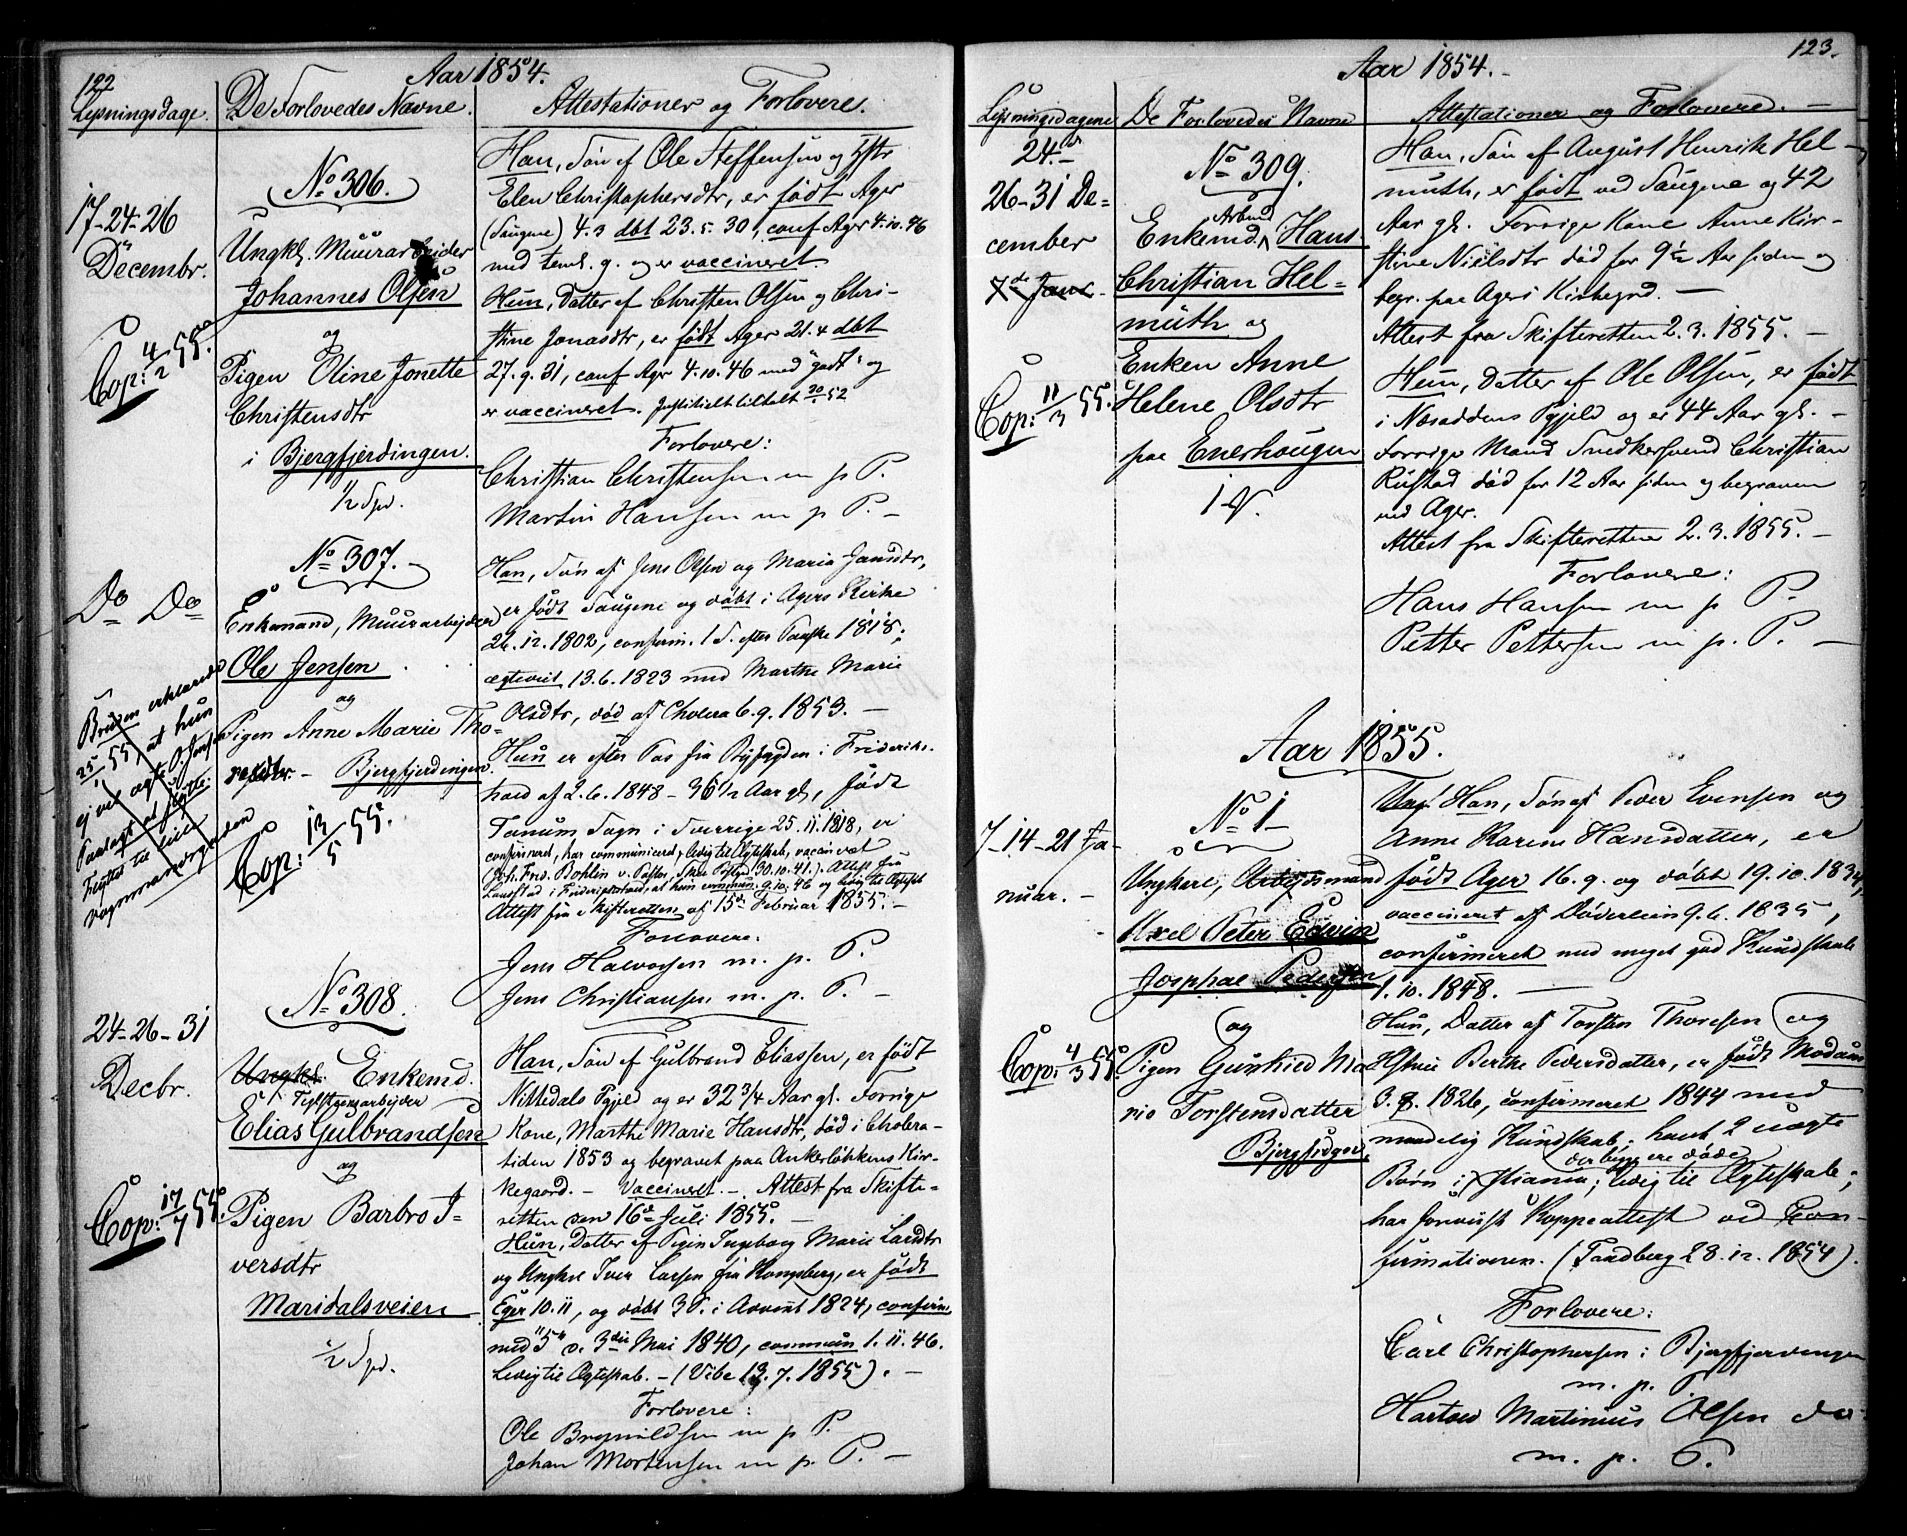 122
Aar 1854.
Lysningsdage.
De Forlovedes Navne.
Attestationer og Forlovere.
No 306.
17-24-26
Decembr.
Ungkl. Muurarbeider
Johannes Olsen
og
Pigen Oline Jonette
Christensdtr
i Bjergfjerdingen.
1/2 Spd.
Cop: 4/2 55.
Han, Søn af Ole Steffensen og
Elen Christophersdtr, er født Ager
(Saugene) 4.3 dbt 23.5.30, conf Ager 4.10.46
med teml. g. og er vaccineret.
Hun, Datter af Christen Olsen og Chri-
stine Jonasdtr, er født Ager 21.4 dbt
27.9.31, conf Agr 4.10.46 med "godt" og
er vaccineret.
Forlovere:
Christian Christensen m p P.
Martin Hansen m p P. -
No 307. -
Do Do
Enkemand, Muurarbejder
Ole Jensen
og
Pigen Anne Marie Tho-
resdtr. - Bjergfjerdingen.
Cop: 13/5 55.
Bruden erklærede
25/1 55, at hun
ej vil ægte O. Jensen
Han, Søn af Jens Olsen og Maria Jansdtr,
er født Saugene og døbt i Agers Kirke
26.12.1802, confirm. 1 S. efter Paaske 1818;
ægteviet 13.6.1823 med Marthe Marie
Olsdtr, død af Cholera 6.9.1853. -
Hun er efter Pas fra Byfogden i Frideriks-
hald af 2.6.1848 - 36 1/2 Aar gl, født
Tanum Sogn i Sverrige 25.11.1818, er
confirmeret, har communicert, ledig til Ægteskab, vaccineret
Attest fra Skifteretten af 15de Februar 1855. -
Forlovere:
Jens Halvorsen m. p. P.
Jens Christiansen m. p. P. -
No 308.
24-26-31
Decbr.
Ungkl. Enkemd.
Teglstensarbejder
Elias Gulbrandsen
og
Pigen Barbro I-
versdtr
Maridalsveien
1/2 Spd.
Cop: 17/7 55.
Han, Søn af Gulbrand Eliassen, er født
Nittedals Pgjeld og er 32 3/4 Aar gl. Forrige
Kone, Marthe Marie Hansdtr, død i Cholera-
tiden 1853 og begravet paa Ankerløkkens Kir-
kegaard. - Vaccineret. - Attest fra Skifte-
retten den 16de Juli 1855. -
Hun, Datter af Pigen Ingeborg Marie Larsdtr
og Ungkrl Iver Larsen fra Kongsberg, er født
Eger 10.11, og døbt 3 S. i Advent 1824, confirm.
med "5" d. 3die Mai 1840, commun 1.11.46.
Ledig til Ægteskab. - (Vibe 13.7.1855). -
Forlovere:
Ole Brynildsen m p P.
Johan Mortensen m p. P. -
123.
Aar 1854. -
Lysningsdagene
De Forlovedes Navne
Attestationer og Forlovere. -
24. -
26-31 De-
cember
7de Janr.
No 309.
Enkemd. Arbmd Hans
Christian Hel-
muth og
Enken Anne
Helene Olsdtr
paa Enerhougen
Cop: 11/3 55.
Han, Søn af August Henrik Hel-
muth, er født ved Saugene og 42
Aar gl. Forrige Kone Anne Kir-
stine Nielsdtr død for 9 1/2 Aar siden og
begr. paa Agers Kirkegrd. -
Attest fra Skifteretten 2.3.1855. -
Hun, Datter af Ole Olsen, er født
i Næsoddens Pgjeld og er 44 Aar gl. -
Forrige Mand Snedkersvend Christian
Rustad død for 12 Aar siden og begraven
ved Ager.
Attest fra Skifteretten 2.3.1855. -
Forlovere:
Hans Hansen m p P.
Petter Pettersen m p. P. -
Aar 1855.
No 1
7-14-21 Ja-
nuar. -
Ungkarl, Arbejdsmand
Axel Peter Edvin
Josphae Pedersen
og
Pigen Gunhild Ma-
rie Torstensdatter
Bjergfjdgen,
Cop: 4/3 55.
Han, Søn af Peder Evensen og
Anne Karine Hansdatter, er
født Ager 16.9. og døbt 19.10.1834,
vaccineret af Døderlein 9.6.1835,
confirmeret med meget god Kundskab
1.10.1848. -
Hun, Datter af Torsten Thoresen og
Berthe Pedersdatter, er født Modum
3.8.1826, confirmeret 1844 med
maadelig Kundskab; havt 2 uægte
der begge ere døde
Børn i Xstiania; ledig til Ægteskab;
har forevist Koppeattest ved Con-
firmationen. (Tandberg 28.12.1854).
Forlovere:
Carl Christophersen i Bjergfjerdingen
m. p. P.
Martinius Olsen do
m. p. P.